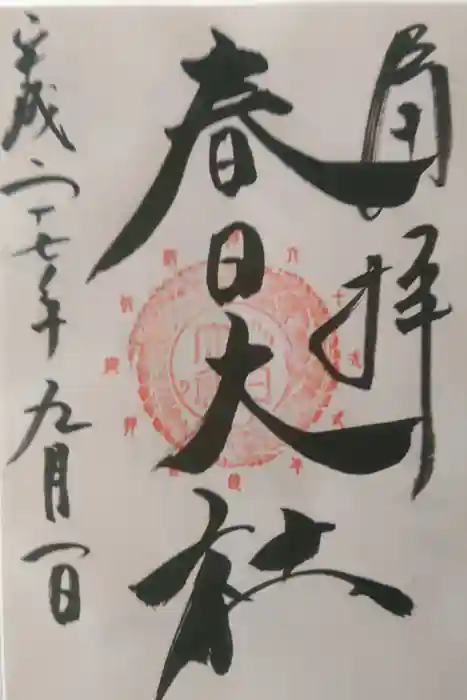 奉拝
春日大社
平成二十七年九月一日